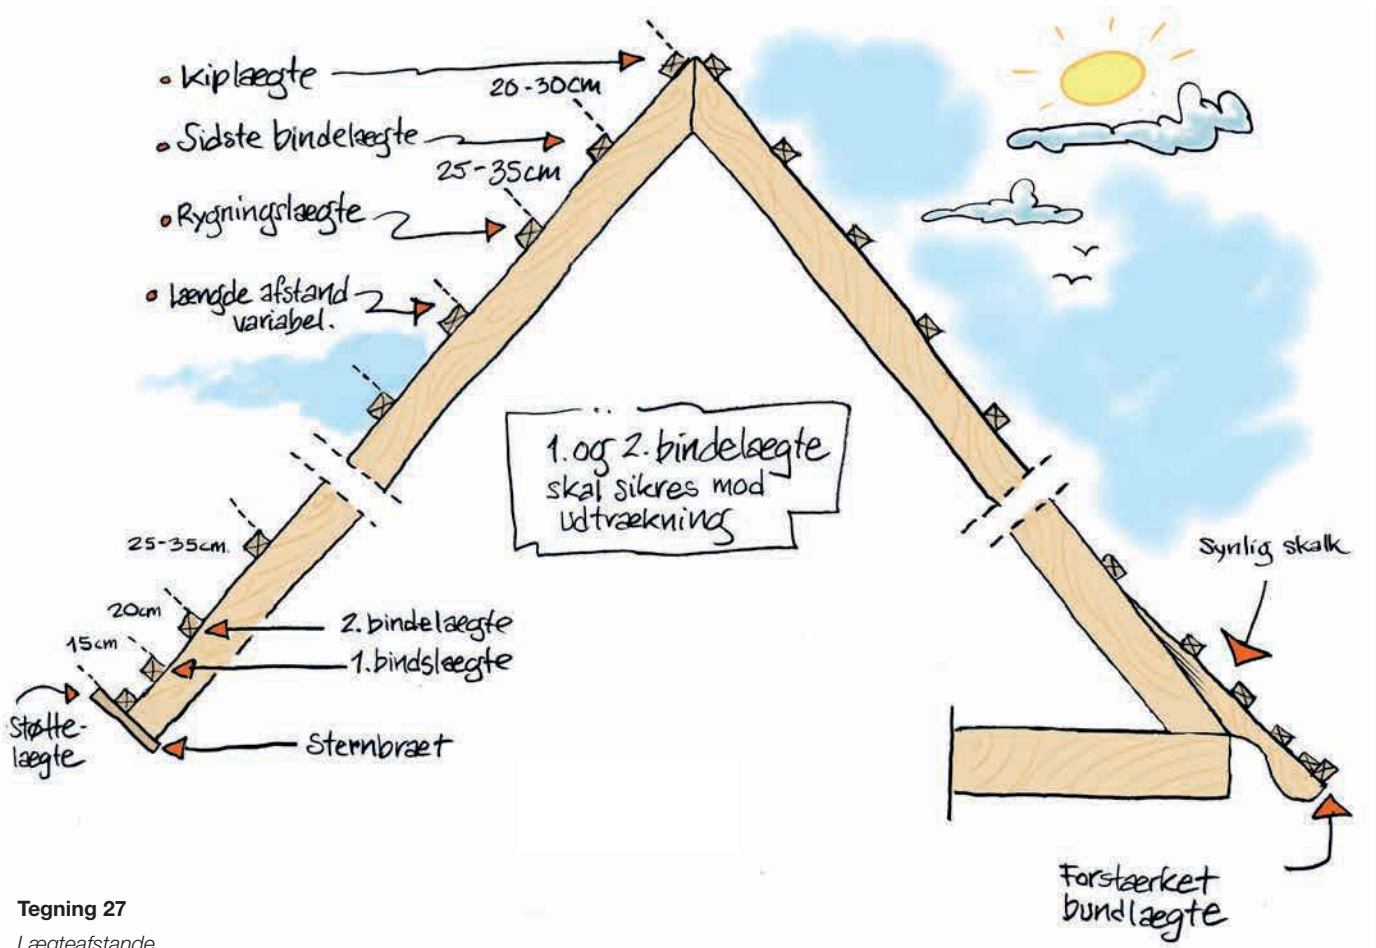 • Kiplægte
20-30cm
• Sidste bindelægte
25-35cm
• Rygningslægte
• Længde afstand
variabel.
1. og 2. bindelægte
skal sikres mod
udtrækning
Synlig skalk
25-35cm.
20cm
2. bindelægte
15cm
1. bindslægte
Støtte-
lægte
Sternbræt
Forstærket
bundlægte
Tegning 27
Lægteafstande